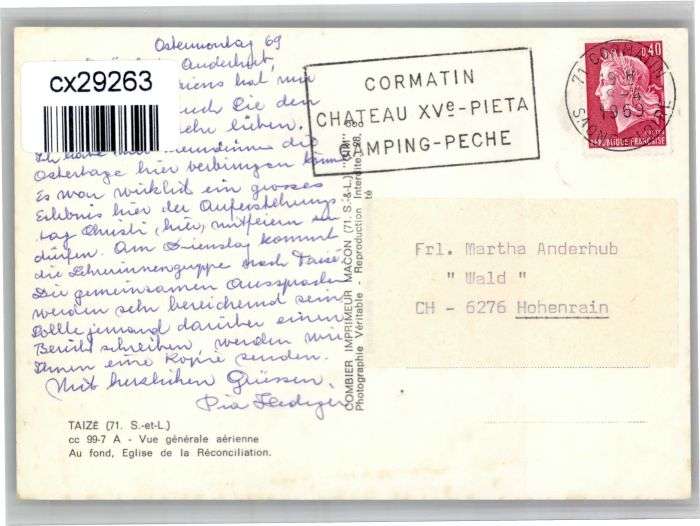 Ostermontag 69
Anderhub,
cx29263
hat mir
auch Sie den
sehr lieben.
Ich habe
die
Ostertage hier verbringen können.
Es war wirklich ein grosses
Erlebnis hier der Auferstehungs-
tag Christi, hier, mitfeiern zu
dürfen. Am Dienstag kommt
die Lehrerinnengruppe nach Taizé.
Die gemeinsamen Aussprachen
werden sehr bereichend sein
Sollte jemand darüber einen
Bericht schreiben werden wir
Ihnen eine Kopie senden.
Mit herzlichen Grüssen,
Pia
TAIZE (71. S.-et-L.)
cc 99-7 A - Vue générale aérienne
Au fond, Eglise de la Réconciliation.
COMBIER IMPRIMEUR MACON (71. S.-&-L.) "CIM"
Photographie Véritable - Reproduction Interdite
CORMATIN
CHATEAU XVe-PIETA
CAMPING-PECHE
0,40
REPUBLIQUE FRANCAISE
71 CORMATIN
1969
SAONE-ET-LOIRE
Frl. Martha Anderhub
" Wald "
CH - 6276 Hohenrain